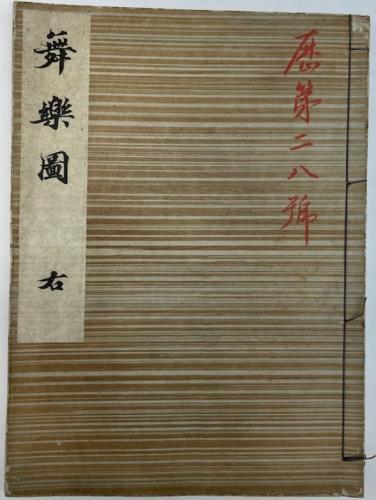 歷第二八號
舞樂圖 右